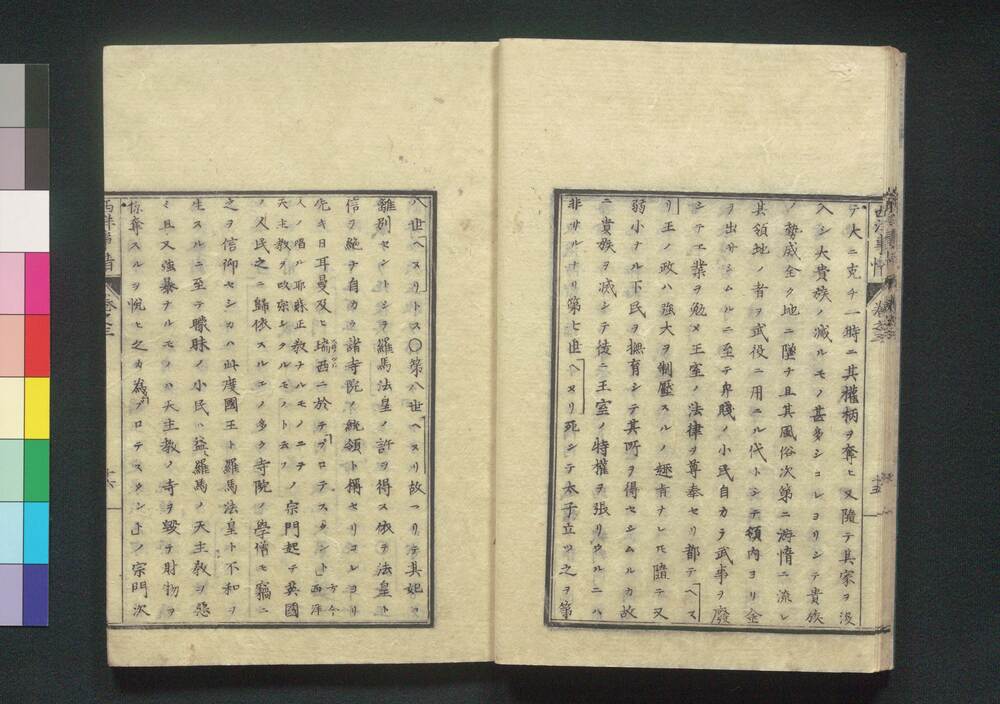 テ大ニ克チ一時ニ其權柄ヲ奪ヒ又隨テ其家ヲ沒
入シ大貴族ノ滅ルモノ甚多シコレヨリシテ貴族
ノ勢威全ク地ニ墮チ且其風俗次第ニ游惰ニ流レ
其領地ノ者ヲ武役ニ用ニル代トシテ領内ヨリ金
ヲ出サシムルニ至テ卑賤ノ小民自カラ武事ヲ廢
シテ工業ヲ勉メ王室ノ法律ヲ尊奉セリ都テ「ヘス
リ」王ノ政ハ強大ヲ制壓スルノ趣旨ナレ𪜈隨テ又
弱小ナル下民ヲ撫育シテ其所ヲ得セシムルカ故
ニ貴族ヲ滅シテ徒ニ王室ノ特權ヲ張リタルニハ
非サルナリ第七世「ヘヌリ」死シテ太子立ツ之ヲ第
八世「ヘヌリ」トス〇第八世「ヘヌリ」故アリテ其妃ヲ
離別セントシヲ羅馬法皇ノ許ヲ得ス依テ法皇ト
信ヲ絶チ自カラ諸寺院ノ統領ト稱セリコレヨリ
先キ日耳曼及ヒ瑞西ニ於テ「プロテスタント」方今西洋
人ノ唱ル耶蘇正教ナルモノニテ天主教ヲ改宗シタルモノト云フノ宗門起テ英國
ノ人民之ニ歸依スルモノ多ク寺院ノ學僧モ竊ニ
之ヲ信仰セシカハ此度國王ト羅馬法皇ト不和ヲ
生スルニ至テ矇昧ノ小民ハ益羅馬ノ天主教ヲ惡
ミ且又強暴ナルモノハ天主教ノ寺ヲ毀テ財物ヲ
掠奪スルヲ悅ヒ之カ為プロテスタント」ノ宗門次
西洋事情